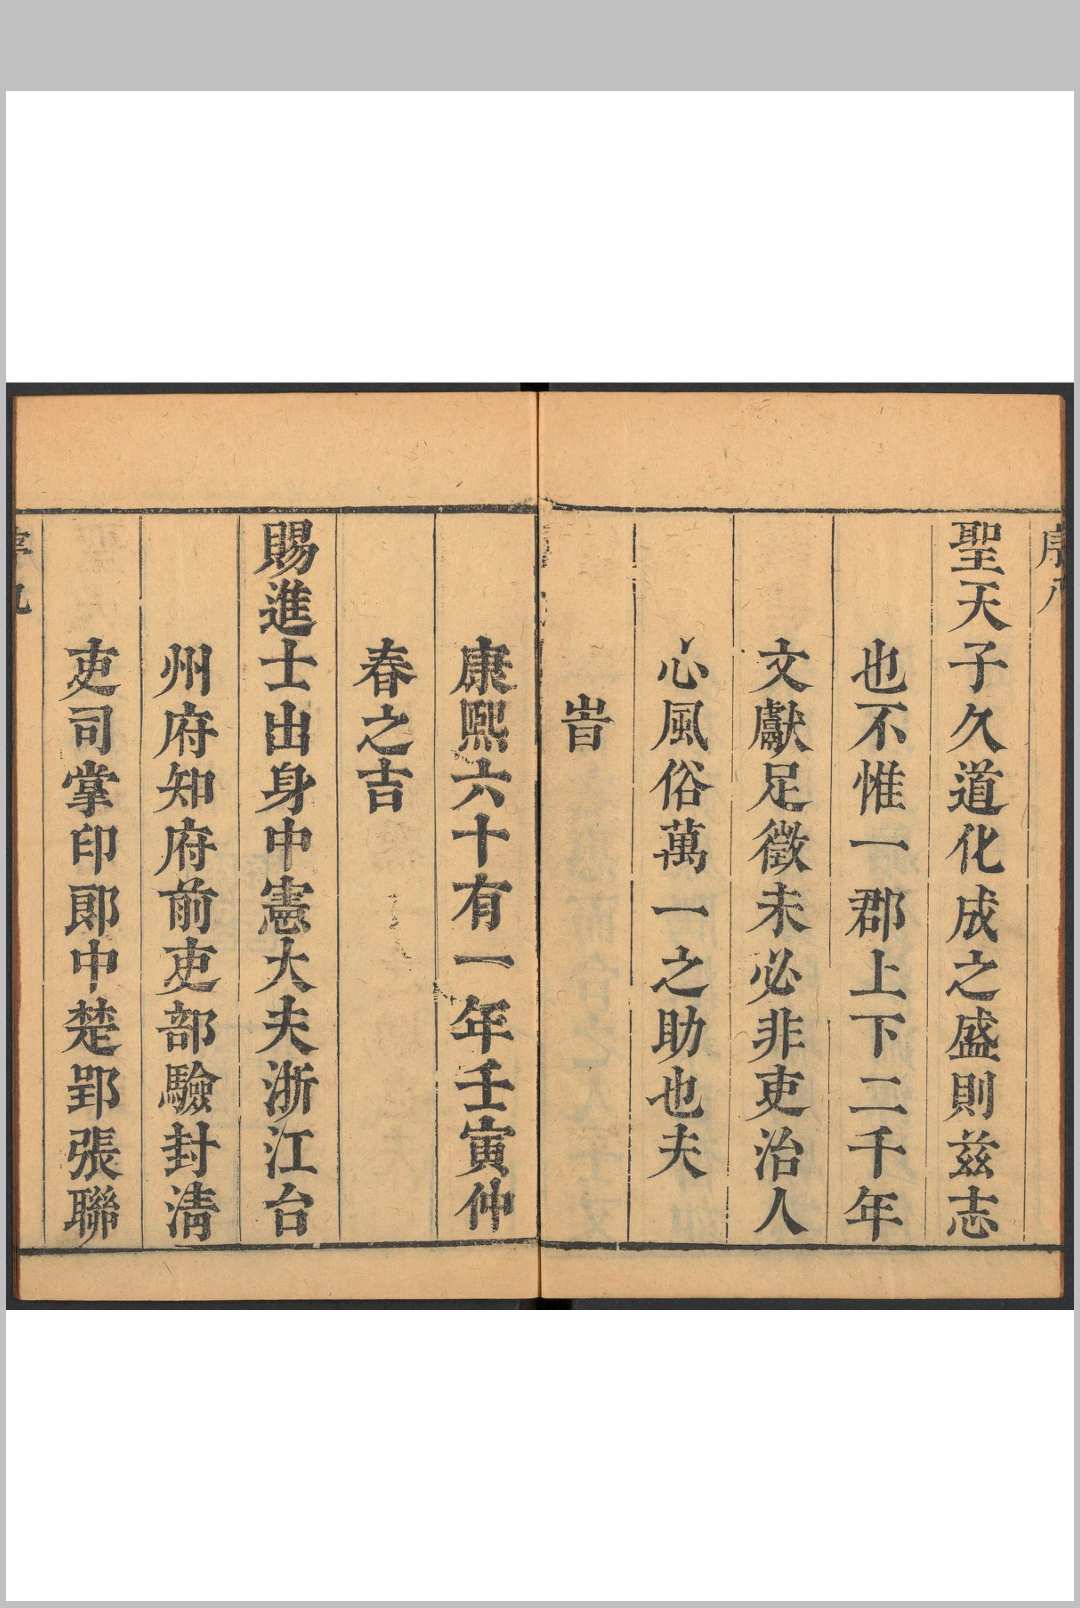 序八
聖天子久道化成之盛則兹志
也不惟一郡上下二千年
文獻足徵未必非吏治人
心風俗萬一之助也夫
旹
康熙六十有一年壬寅仲
春之吉
賜進士出身中憲大夫浙江台
州府知府前吏部驗封清
吏司掌印郎中楚郢張聯
序九